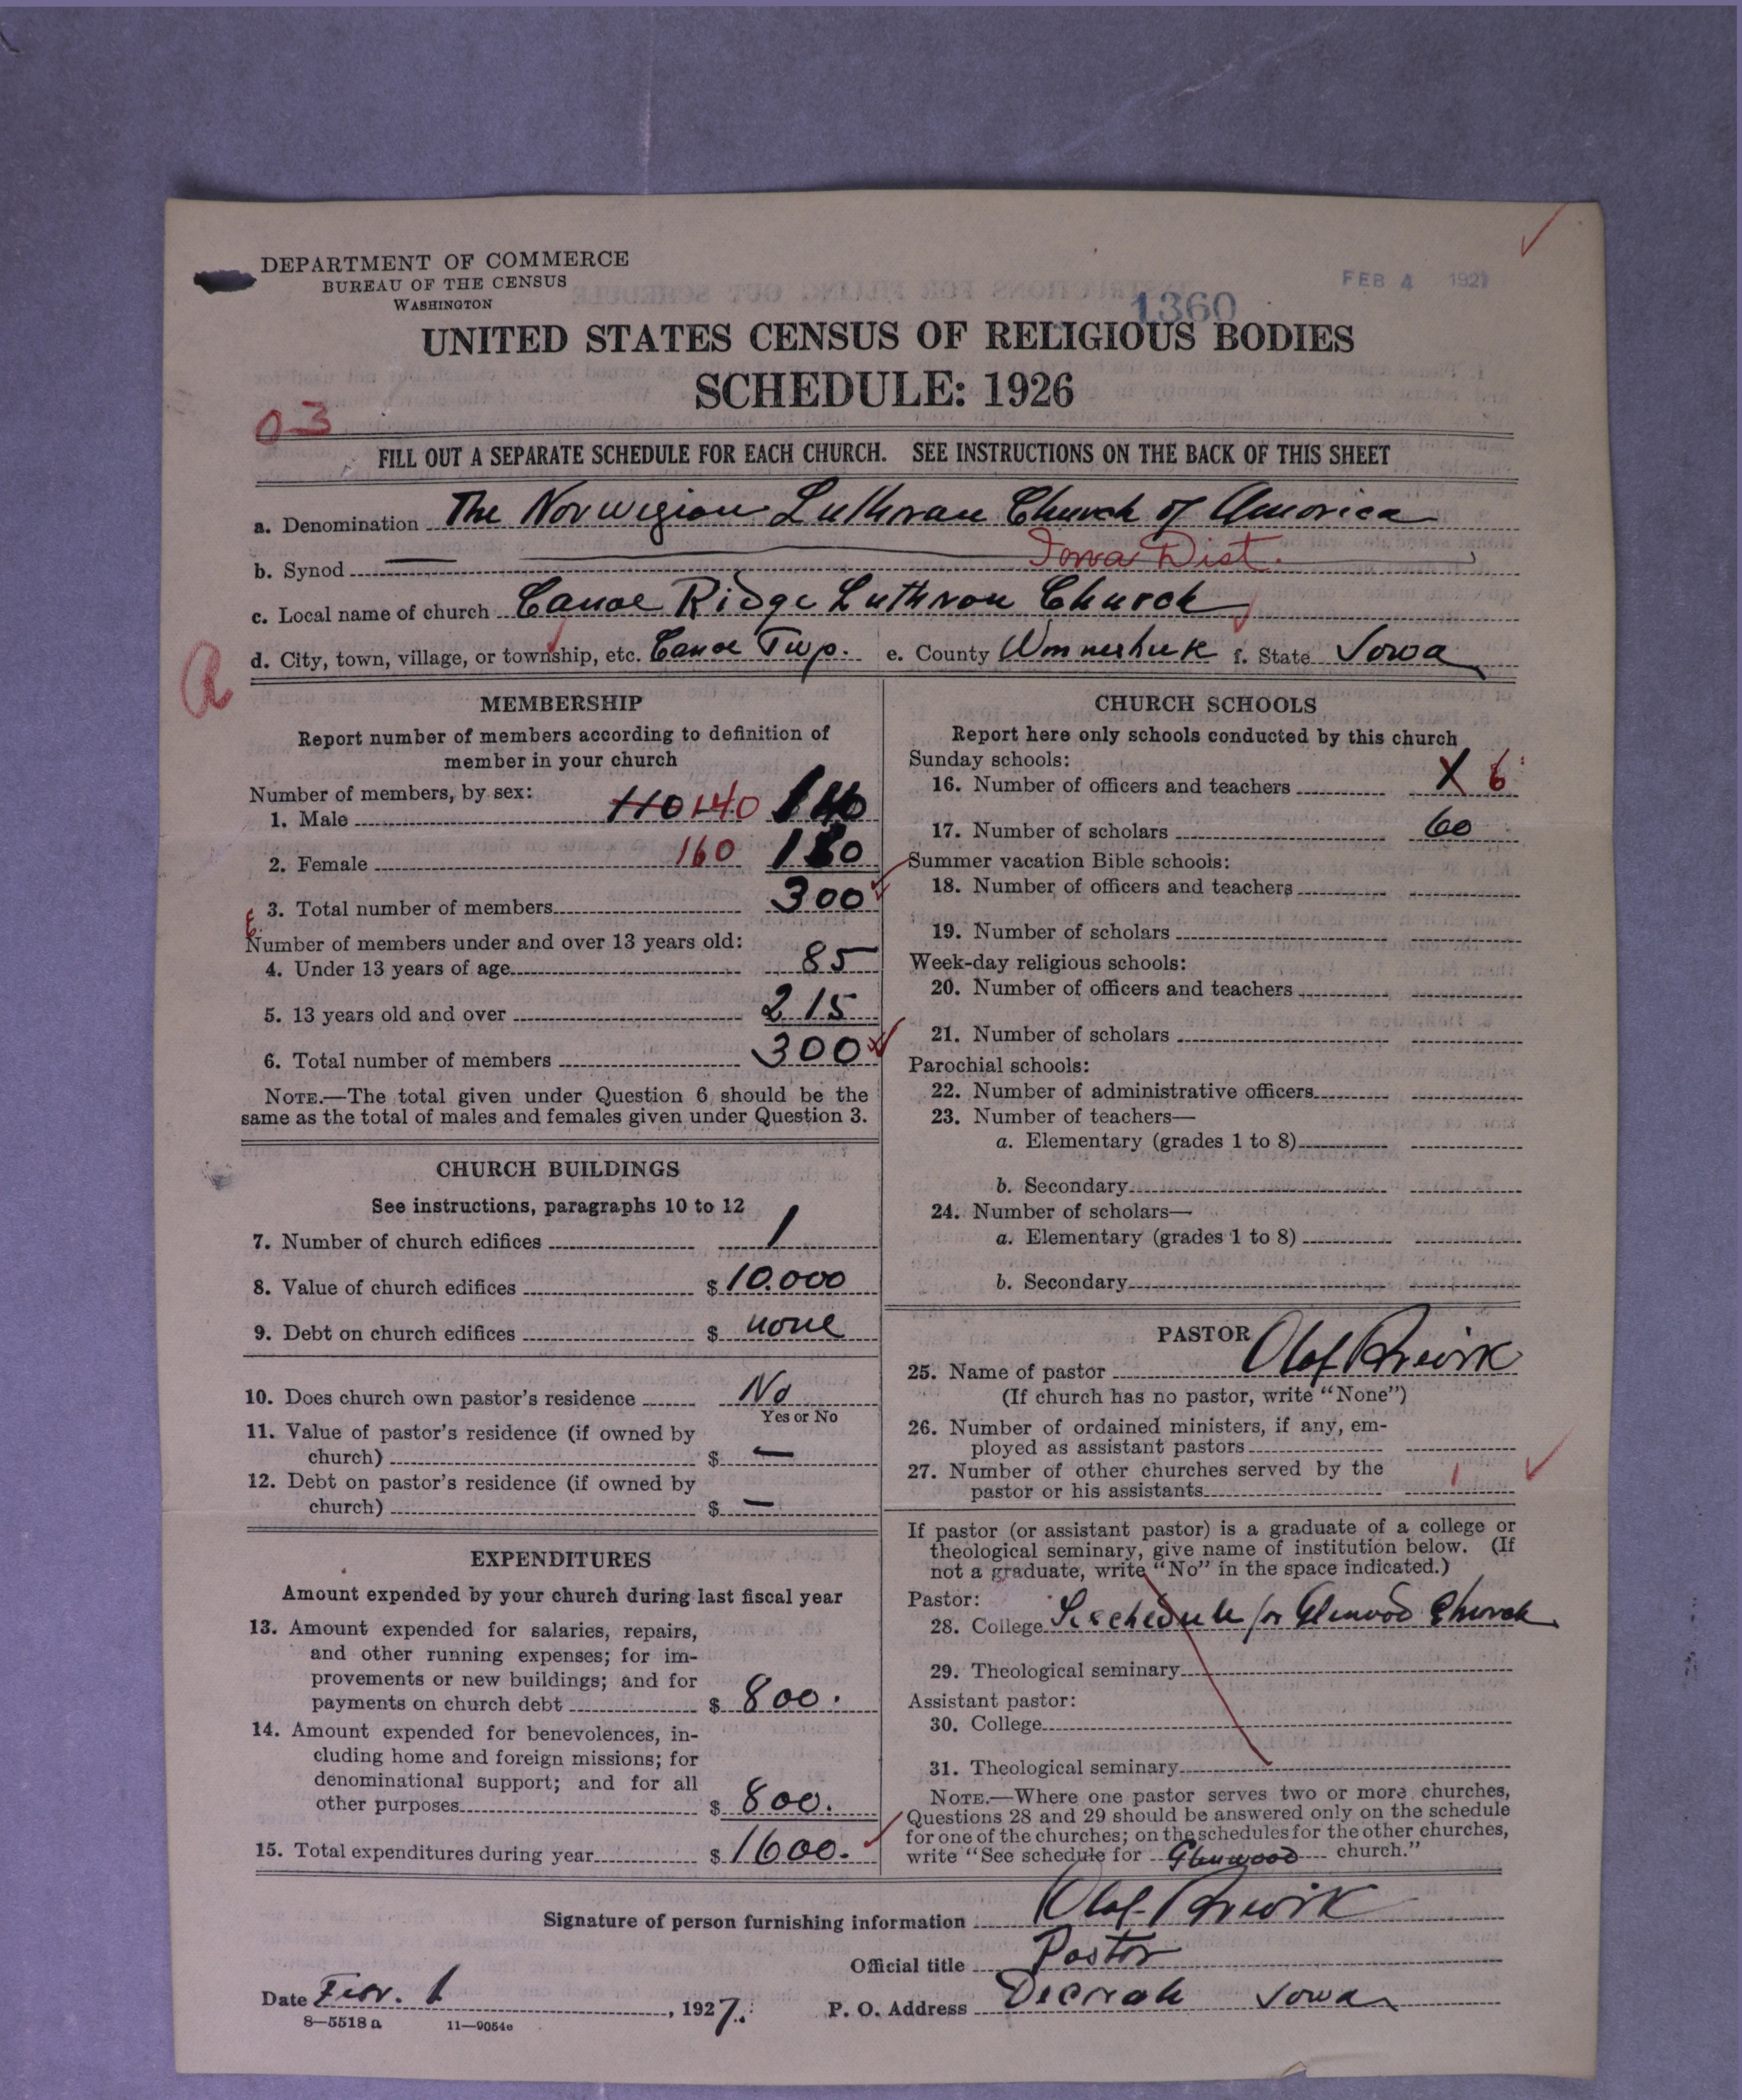 DEPARTMENT OF COMMERCE
BUREAU OF THE CENSUS
WASHINGTON
FEB 4 1927
1360
UNITED STATES CENSUS OF RELIGIOUS BODIES
SCHEDULE: 1926
03
FILL OUT A SEPARATE SCHEDULE FOR EACH CHURCH. SEE INSTRUCTIONS ON THE BACK OF THIS SHEET
a. Denomination The Norwegian Lutheran Church of America
b. Synod — Iowa Dist.
c. Local name of church Canoe Ridge Luthran Church
d. City, town, village, or township, etc. Canoe Twp. e. County Winneshiek f. State Iowa
a
MEMBERSHIP
Report number of members according to definition of
member in your church
Number of members, by sex:
1. Male 110 140 140
2. Female 160 160
3. Total number of members 300
Number of members under and over 13 years old:
4. Under 13 years of age 85
5. 13 years old and over 215
6. Total number of members 300
NOTE.—The total given under Question 6 should be the
same as the total of males and females given under Question 3.
CHURCH BUILDINGS
See instructions, paragraphs 10 to 12
7. Number of church edifices 1
8. Value of church edifices $ 10.000
9. Debt on church edifices $ none
10. Does church own pastor's residence No
Yes or No
11. Value of pastor's residence (if owned by
church) $ —
12. Debt on pastor's residence (if owned by
church) $ —
EXPENDITURES
Amount expended by your church during last fiscal year
13. Amount expended for salaries, repairs,
and other running expenses; for im-
provements or new buildings; and for
payments on church debt $ 800.
14. Amount expended for benevolences, in-
cluding home and foreign missions; for
denominational support; and for all
other purposes $ 800.
15. Total expenditures during year $ 1600.
CHURCH SCHOOLS
Report here only schools conducted by this church
Sunday schools:
16. Number of officers and teachers X 6
17. Number of scholars 60
Summer vacation Bible schools:
18. Number of officers and teachers
19. Number of scholars
Week-day religious schools:
20. Number of officers and teachers
21. Number of scholars
Parochial schools:
22. Number of administrative officers
23. Number of teachers—
a. Elementary (grades 1 to 8)
b. Secondary
24. Number of scholars—
a. Elementary (grades 1 to 8)
b. Secondary
PASTOR
25. Name of pastor Olaf
(If church has no pastor, write "None")
26. Number of ordained ministers, if any, em-
ployed as assistant pastors
27. Number of other churches served by the
pastor or his assistants 1
If pastor (or assistant pastor) is a graduate of a college or
theological seminary, give name of institution below. (If
not a graduate, write "No" in the space indicated.)
Pastor:
28. College See schedule for Glenwood Church
29. Theological seminary
Assistant pastor:
30. College
31. Theological seminary
NOTE.—Where one pastor serves two or more churches,
Questions 28 and 29 should be answered only on the schedule
for one of the churches; on the schedules for the other churches,
write "See schedule for Glenwood church."
Signature of person furnishing information Olaf
Official title Pastor
Date , 1927. P. O. Address Decorah Iowa
8—5518 a 11—9054c